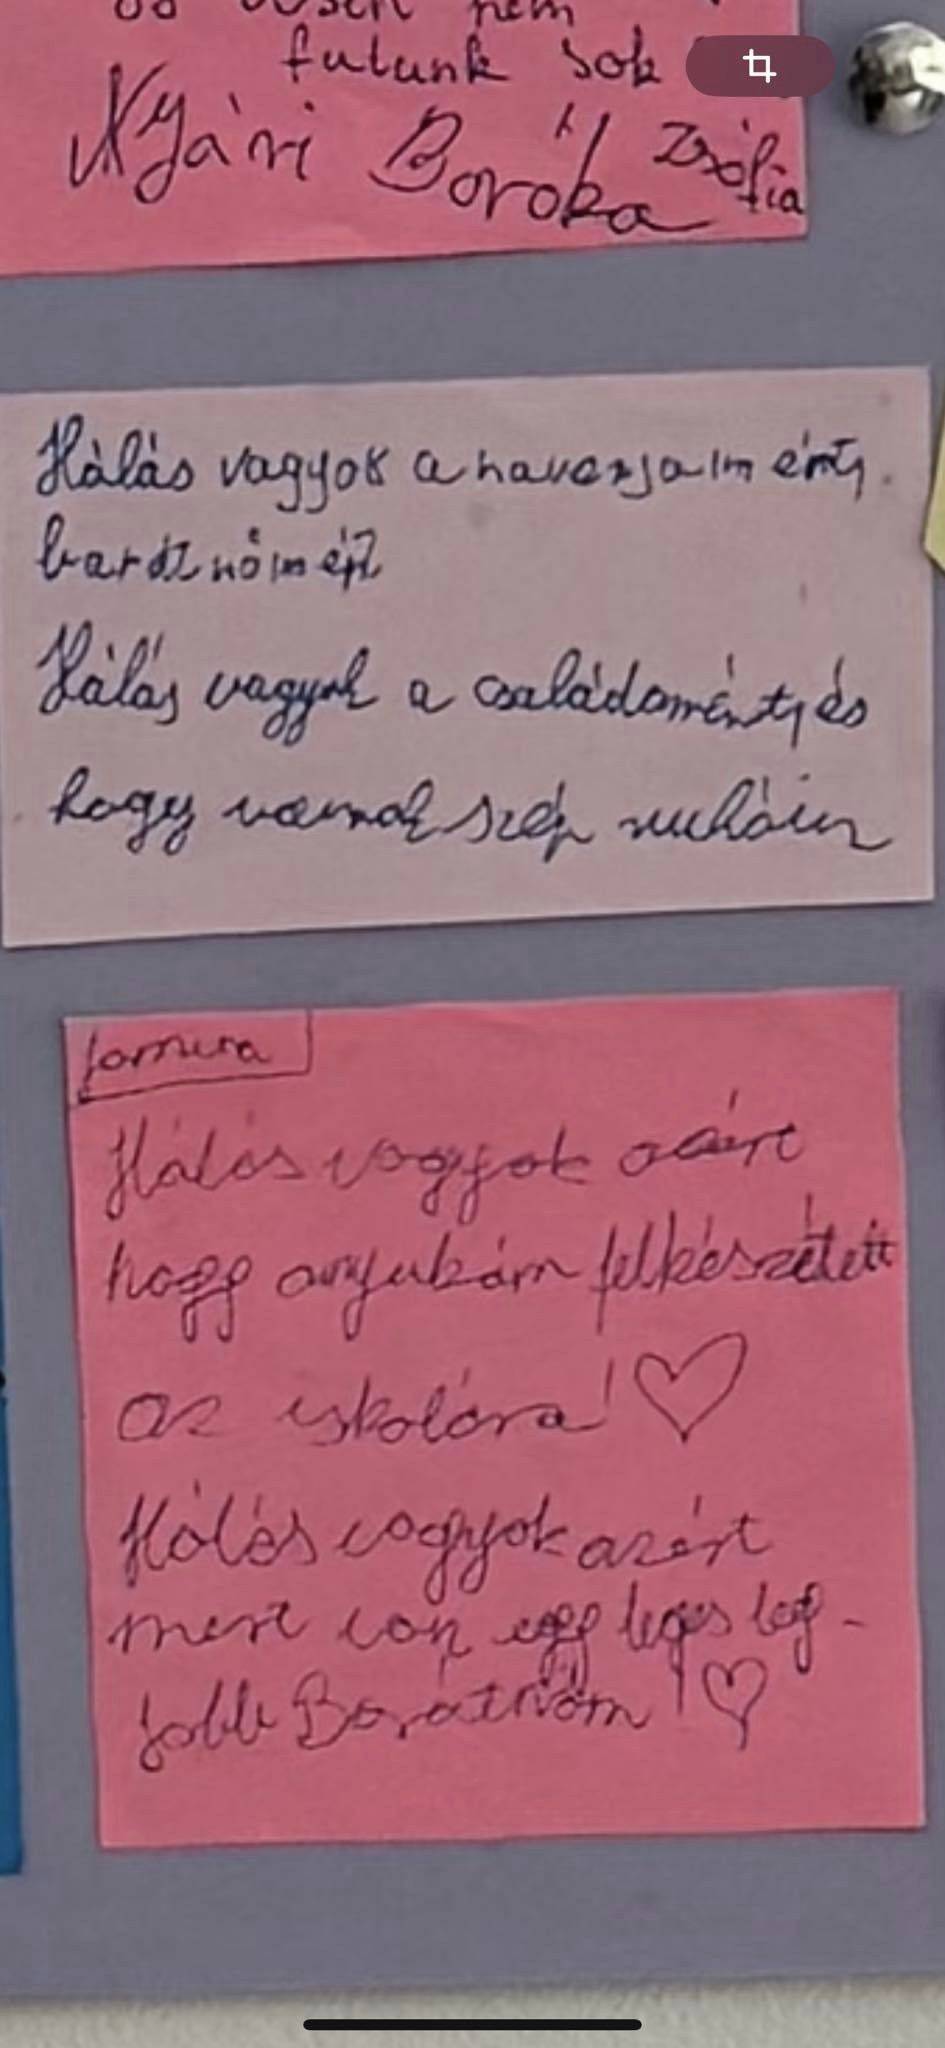 nem
futunk sok
Nyári Boróka Zsófia
Hálás vagyok a haverjaimért,
barátnőmért
Hálás vagyok a családomért, és
hogy vannak szép ruháim
Hálás vagyok azért
hogy anyukám felkészített
az iskolára! ♡
Hálás vagyok azért
mert van egy leges leg-
jobb Barátnőm! ♡